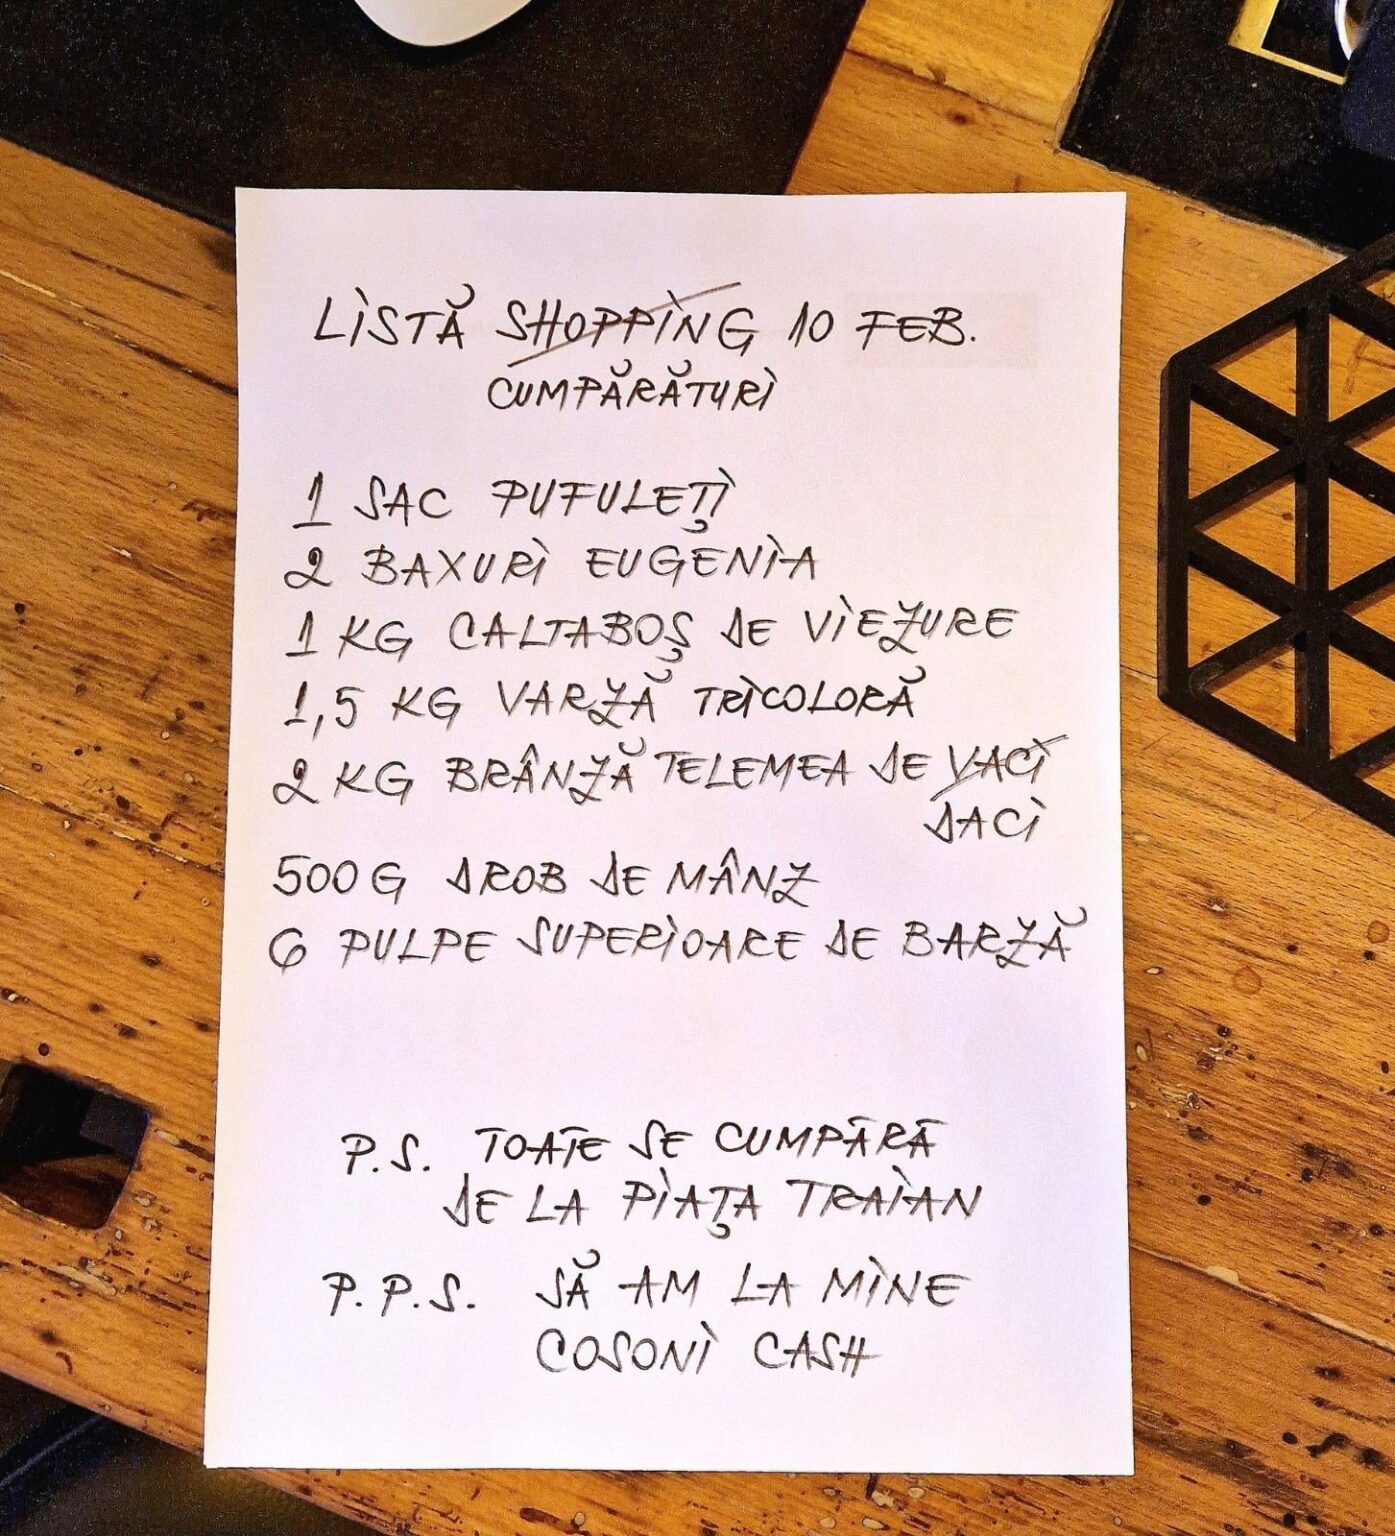 LISTĂ SHOPPING 10 FEB.
CUMPĂRĂTURI
1 SAC PUFULEȚI
2 BAXURI EUGENIA
1 KG CALTABOȘ DE VIEZURE
1,5 KG VARZĂ TRICOLORĂ
2 KG BRÂNZĂ TELEMEA DE VACI
DACI
500 G DROB DE MÂNZ
6 PULPE SUPERIOARE DE BARZĂ
P.S. TOATE SE CUMPĂRĂ
DE LA PIAȚA TRAIAN
P.P.S. SĂ AM LA MINE
COSONI CASH